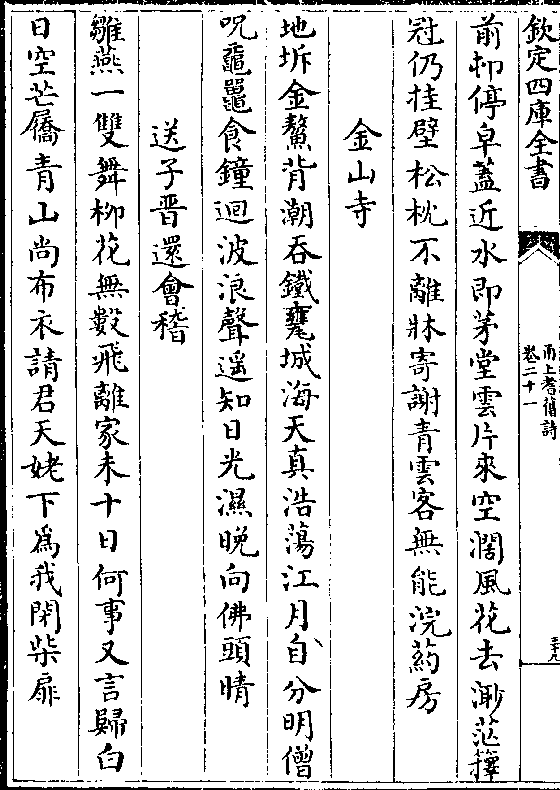 欽定四庫全書
甬上耆舊詩
卷二十一
前抑停皁蓋近水即茅堂雲片來空濶風花去渺茫籜
冠仍挂壁松枕不離牀寄謝青雲客無能浣葯房
金山寺
地坼金鰲背潮吞鐵甕城海天真浩蕩江月自分明僧
呪黿鼉食鐘迴波浪聲遥知日光濕晚向佛頭晴
送子晋還會稽
雛燕一雙舞柳花無數飛離家未十日何事又言歸白
日空芒屩青山尚布衣請君天姥下為我閉柴扉